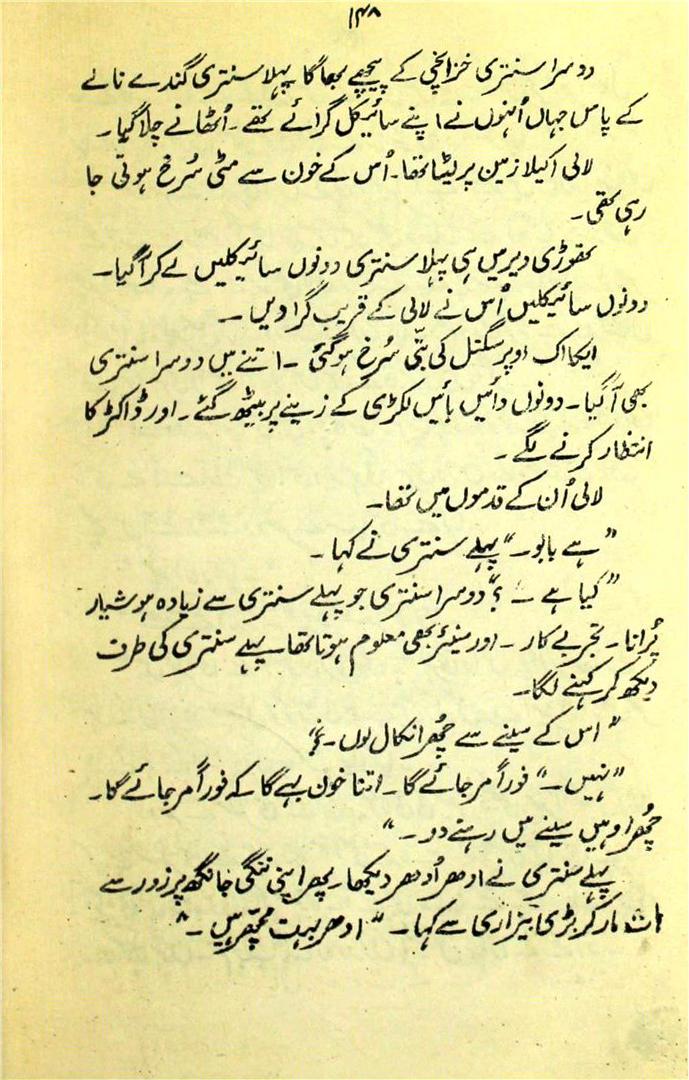 ۱۴۸
دوسرا سنتری خزانچی کے پیچھے بھاگا پہلا سنتری گندے نالے
کے پاس جہاں اُنہوں نے اپنے سائیکل گرائے تھے۔ اُٹھانے چلا گیا۔
لالی اکیلا زمین پر لیٹا تھا۔ اُس کے خون سے مٹی سُرخ ہوتی جا
رہی تھی۔
تھوڑی دیر میں ہی پہلا سنتری دونوں سائیکلیں لے کر آگیا۔
دونوں سائیکلیں اُس نے لالی کے قریب گرا دیں ۔
ایکا اک اوپر سگنل کی بتّی سُرخ ہوگئی ۔ اتنے میں دوسرا سنتری
بھی آ گیا۔ دونوں دائیں بائیں لکڑی کے زینے پر بیٹھ گئے۔ اور ڈاکٹر کا
انتظار کرنے لگے ۔
لالی اُن کے قدموں میں تھا۔
”ہے بابو۔“ پہلے سنتری نے کہا ۔
”کیا ہے ۔ ؟“ دوسرا سنتری جو پہلے سنتری سے زیادہ ہوشیار
پُرانا ۔ تجربے کار ۔ اور سینئر بھی معلوم ہوتا تھا۔ پہلے سنتری کی طرف
دیکھ کر کہنے لگا۔
”اس کے سینے سے چُھرا نکال لوں ۔؟“
”نہیں ۔“ فوراً مر جائے گا۔ اتنا خون بہے گا کہ فوراً مر جائے گا۔
چُھرا وہیں سینے میں رہنے دو ۔ “
پہلے سنتری نے ادھر اُدھر دیکھا۔ پھر اپنی ننگی جانگھ پر زور سے
ہاتھ مار کر بڑی بیزاری سے کہا۔ ”ادھر بہت مچھّر ہیں ۔“